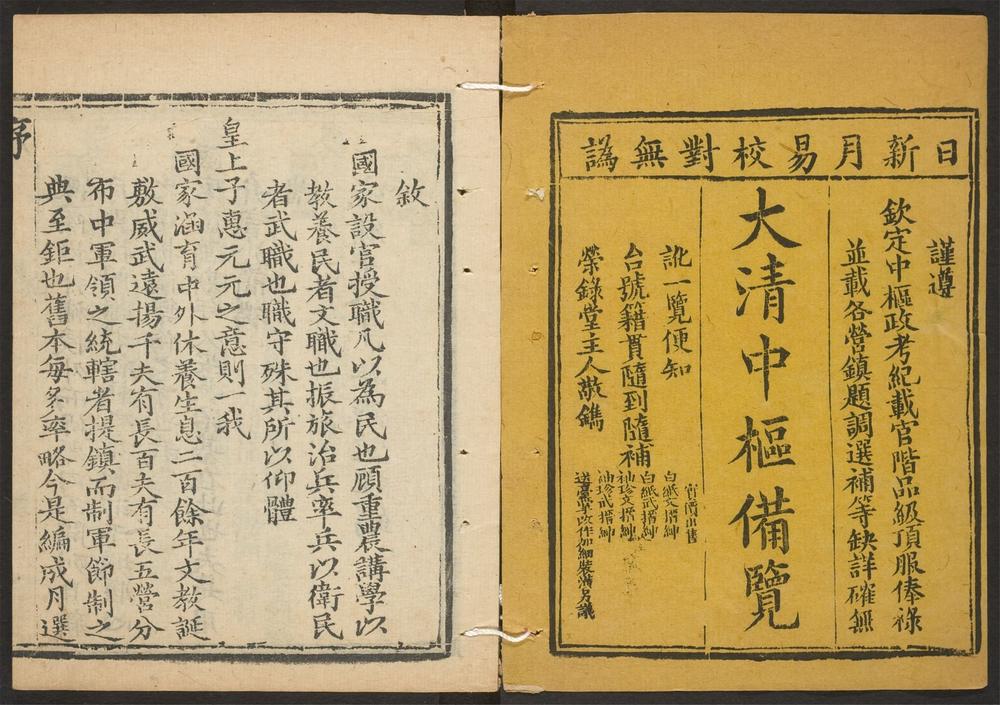 日新月易校對無譌
謹遵
欽定中樞政考紀載官階品級頂服俸祿
並載各營鎮題調選補等缺詳確無
大清中樞備覽
訛一覽便知
台號籍貫隨到隨補
榮錄堂主人敬鐫
實價出售
白紙文搢紳
白紙武搢紳
袖珍文搢紳
袖珍武搢紳
敘
國家設官授職凡以為民也顧重農講學以
教養民者文職也振旅治兵率兵以衛民
者武職也職守殊其所以仰體
皇上子惠元元之意則一我
國家涵育中外休養生息二百餘年文教誕
敷威武遠揚千夫有長百夫有長五營分
布中軍領之統轄者提鎮而制軍節制之
典至鉅也舊本每多率略今是編成月選
序